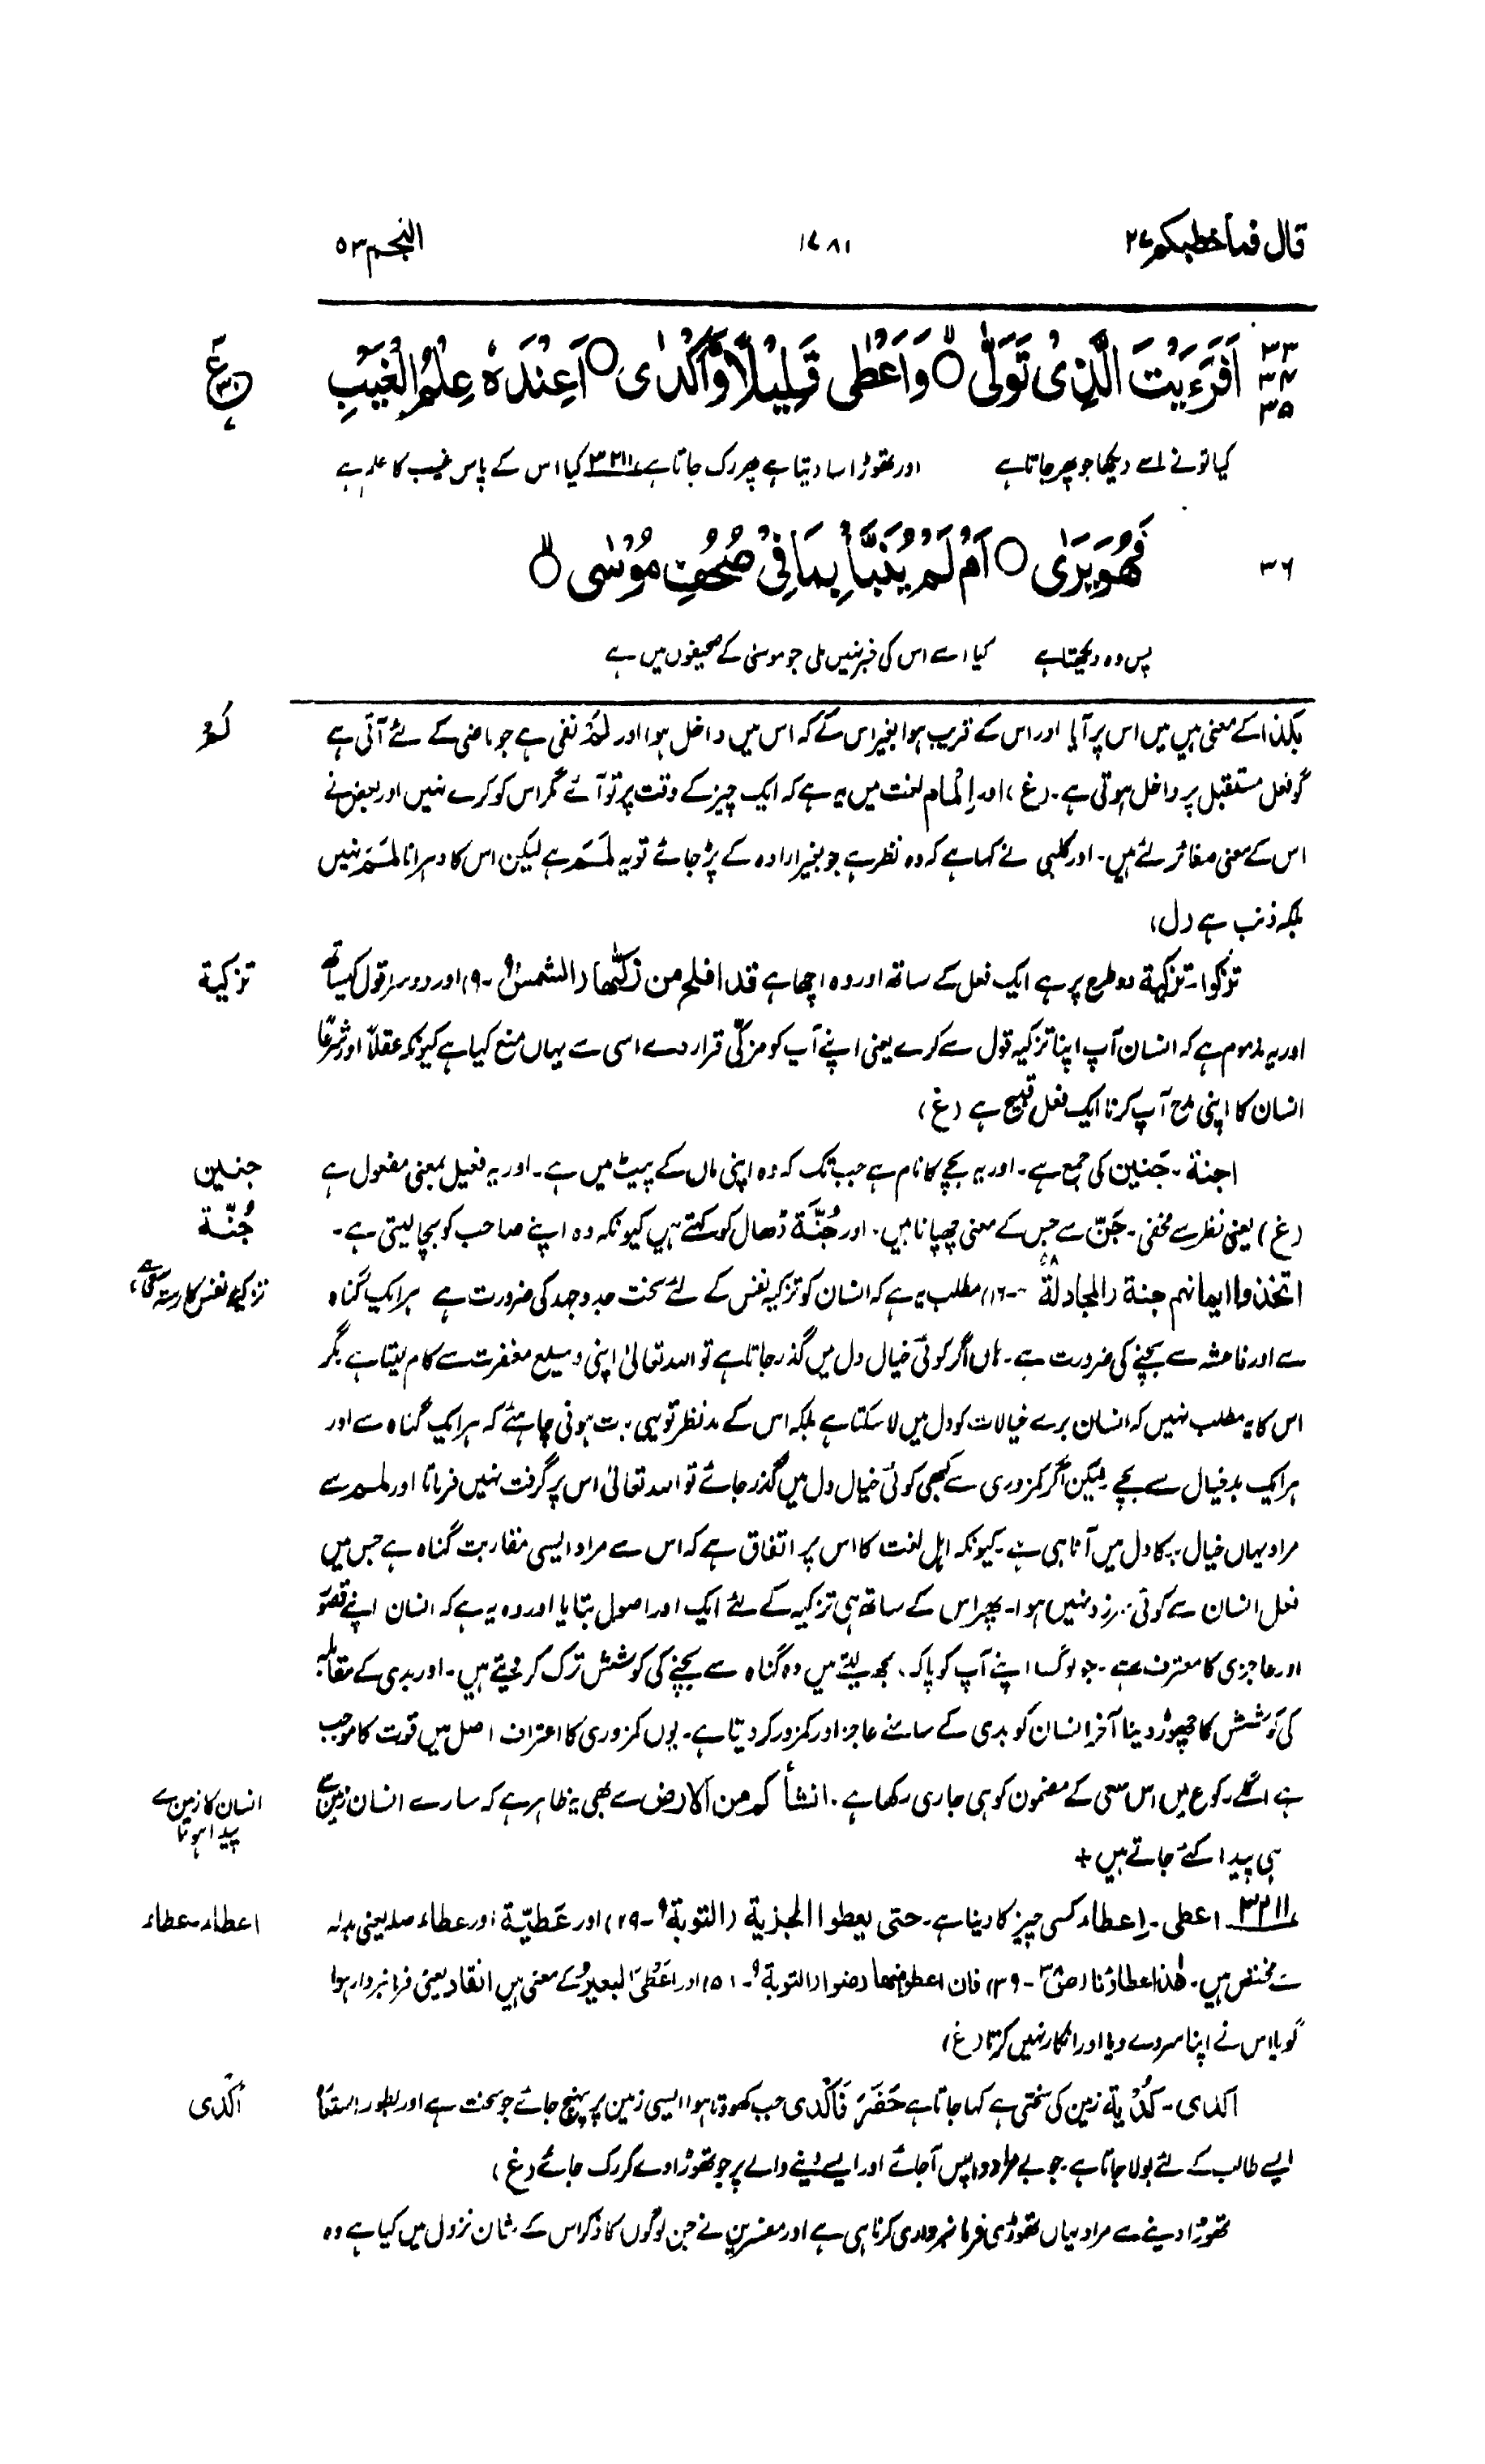 قال فمأخطبکم ۲۷
۱۷۸۱
النجم ۵۳
۳۳
۳۴
۳۵
اَفَرَءَیْتَ الَّذِیْ تَوَلّٰی ۙ وَاَعْطٰی قَلِیْلًا وَّاَکْدٰی ○ اَعِنْدَہٗ عِلْمُ الْغَیْبِ
کیا تو نے اسے دیکھا جو پھر جاتا ہے اور تھوڑا سا دیتا ہے پھر رک جاتا ہے ۳۲۱۱ کیا اس کے پاس غیب کا علم ہے
۳۶
فَھُوَ یَرٰی ○ اَمْ لَمْ یُنَبَّاْ بِمَا فِیْ صُحُفِ مُوْسٰی ۙ
پس وہ دیکھتا ہے کیا اسے اس کی خبر نہیں ملی جو موسیٰ کے صحیفوں میں ہے
بکذا کے معنی ہیں میں اس پر آیا اور اس کے قریب ہوا بغیر اس کے کہ اس میں داخل ہوا اور لَمْ نفی ہے جو ماضی کے لئے آتی ہے
لَمْ
گو فعل مستقبل پر داخل ہوتی ہے۔ (غ) اور اِلمام لغت میں یہ ہے کہ ایک چیز کے وقت پر تو آئے مگر اس کو کرے نہیں اور بعض نے
اس کے معنی صغائر لئے ہیں۔ اور کلبی نے کہا ہے کہ وہ نظر ہے جو بغیر ارادہ کے پڑ جائے تو یہ لَمَم ہے لیکن اس کا دہرانا لَمَم نہیں
بلکہ ذنب ہے (ل)
تزکوا۔ تزکیة دو طرح پر ہے ایک فعل کے ساتھ اور وہ اچھا ہے قد افلح من زکّٰھا (الشمس ۹۱۔۹) اور دوسرا قول کیساتھ
تزکیة
اور یہ مذموم ہے کہ انسان آپ اپنا تزکیہ قول سے کرے یعنی اپنے آپ کو مزکّی قرار دے اسی سے یہاں منع کیا ہے کیونکہ عقلاً اور شرعًا
انسان کا اپنی مدح آپ کرنا ایک فعل قبیح ہے (غ)
اجنة۔ جَنین کی جمع ہے۔ اور یہ بچے کا نام ہے جب تک کہ وہ اپنی ماں کے پیٹ میں ہے۔ اور یہ فعیل بمعنی مفعول ہے
جنین
(غ) یعنی نظر سے مخفی۔ جَنّ سے جس کے معنی چھپانا ہیں۔ اور جُنَّة ڈھال کو کہتے ہیں کیونکہ وہ اپنے صاحب کو بچا لیتی ہے۔
جُنّة
اتخذوا ایمانھم جنة (المجادلة ۵۸۔۱۶) مطلب یہ ہے کہ انسان کو تزکیہ نفس کے لئے سخت جدوجہد کی ضرورت ہے ہر ایک گناہ
تزکیہ نفس کا رستہ سعی ہے
سے اور فاحشہ سے بچنے کی ضرورت ہے۔ ہاں اگر کوئی خیال دل میں گذر جاتا ہے تو اللہ تعالیٰ اپنی وسیع مغفرت سے کام لیتا ہے مگر
اس کا یہ مطلب نہیں کہ انسان برے خیالات کو دل میں لا سکتا ہے بلکہ اس کے مدنظر تو یہی بات ہونی چاہئے کہ ہر ایک گناہ سے اور
ہر ایک بد خیال سے بچے لیکن اگر کمزوری سے کبھی کوئی خیال دل میں گذر جائے تو اللہ تعالیٰ اس پر گرفت نہیں فرماتا اور لمم سے
مراد یہاں خیال بد کا دل میں آنا ہی ہے۔ کیونکہ اہل لغت کا اس پر اتفاق ہے کہ اس سے مراد ایسی مقاربت گناہ ہے جس میں
فعل انسان سے کوئی سرزد نہیں ہوا۔ پھر اس کے ساتھ ہی تزکیہ کے لئے ایک اور اصول بتایا اور وہ یہ ہے کہ انسان اپنے قصور
اور عاجزی کا معترف رہے۔ جو لوگ اپنے آپ کو پاک سمجھ لیتے ہیں وہ گناہ سے بچنے کی کوشش ترک کر دیتے ہیں۔ اور بدی کے مقابلہ
کی کوشش کا چھوڑ دینا آخر انسان کو بدی کے سامنے عاجز اور کمزور کر دیتا ہے۔ یوں کمزوری کا اعتراف اصل میں قوت کا موجب
ہے اگلے رکوع میں اس سعی کے مضمون کو ہی جاری رکھا ہے۔ انشأکم من الارض سے بھی یہ ظاہر ہے کہ سارے انسان زمین سے
انسان کا زمین سے پیدا ہونا
ہی پیدا کئے جاتے ہیں +
۳۲۱۱ اعطی۔ اِعطاء کسی چیز کا دینا ہے۔ حتی یعطوا الجزیة (التوبة ۹۔۲۹) اور عَطیّة اور عطاء صلہ یعنی بدلہ
اعطاء۔ عطاء
سے مختص ہیں۔ ھٰذا عطاؤنا (صٓ ۳۸۔۳۹) فان اعطوا منھا رضوا (التوبة ۹۔۵۸) اور اَعْطَی البعیرُ کے معنی ہیں انقاد یعنی فرمانبردار ہوا
گویا اس نے اپنا سر دے دیا اور انکار نہیں کرتا (غ)
اکدی۔ کُدْیة زمین کی سختی ہے کہا جاتا ہے حَفَرَ فَاَکْدٰی جب کھودتا ہوا ایسی زمین پر پہنچ جائے جو سخت ہے اور بطور استعارہ
اکدی
ایسے طالب کے لئے بولا جاتا ہے۔ جو بے مراد واپس آ جائے اور ایسے دینے والے پر جو تھوڑا دے کر رک جائے (غ)
تھوڑا دینے سے مراد یہاں تھوڑی فرمانبرداری کرنا ہی ہے اور مفسرین نے جن لوگوں کا ذکر اس کے شان نزول میں کیا ہے وہ